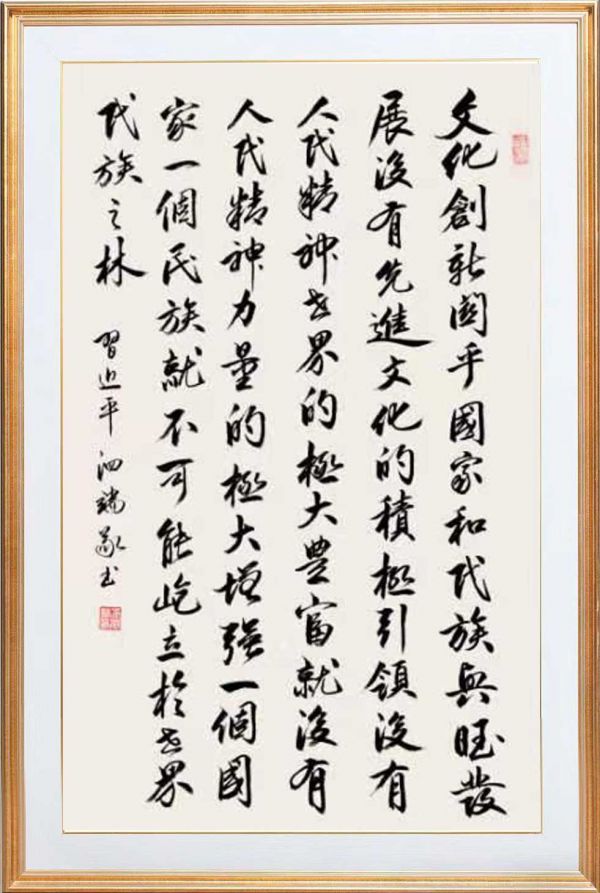 文化創新關乎國家和民族興旺發
展没有先進文化的積極引領没有
人民精神世界的極大豐富就没有
人民精神力量的極大增强一個國
家一個民族就不可能屹立於世界
民族之林 習近平 泗端书